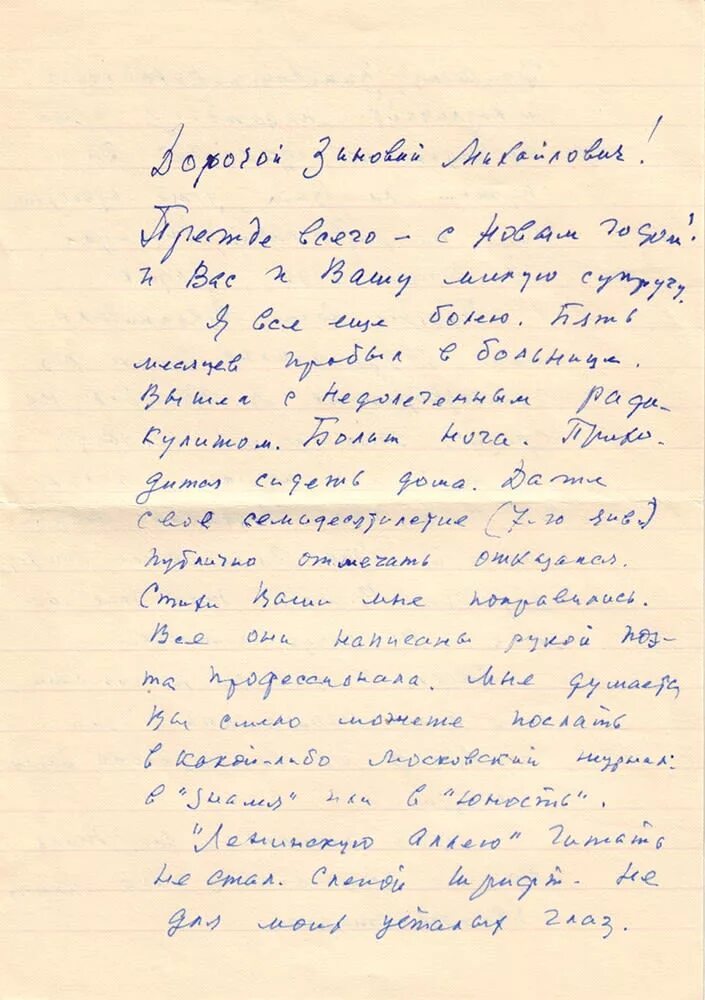 Дорогой Зиновий Михайлович!
Прежде всего – с Новым годом!
и Вас и Вашу милую супругу.
Я все еще болею. Пять
месяцев пробыл в больнице.
Вышел с недолеченным ради-
кулитом. Болит нога. Прихо-
дится сидеть дома. Даже
свое семидесятилетие (7-го янв.)
публично отмечать отказался.
Стихи Ваши мне понравились.
Все они написаны рукой поэ-
та профессионала. Мне думается
Вы смело можете послать
в какой-либо Московский журнал:
в "Знамя" или в "Юность".
"Ленинскую Аллею" читать
не стал. Слепой шрифт. Не
для моих усталых глаз.